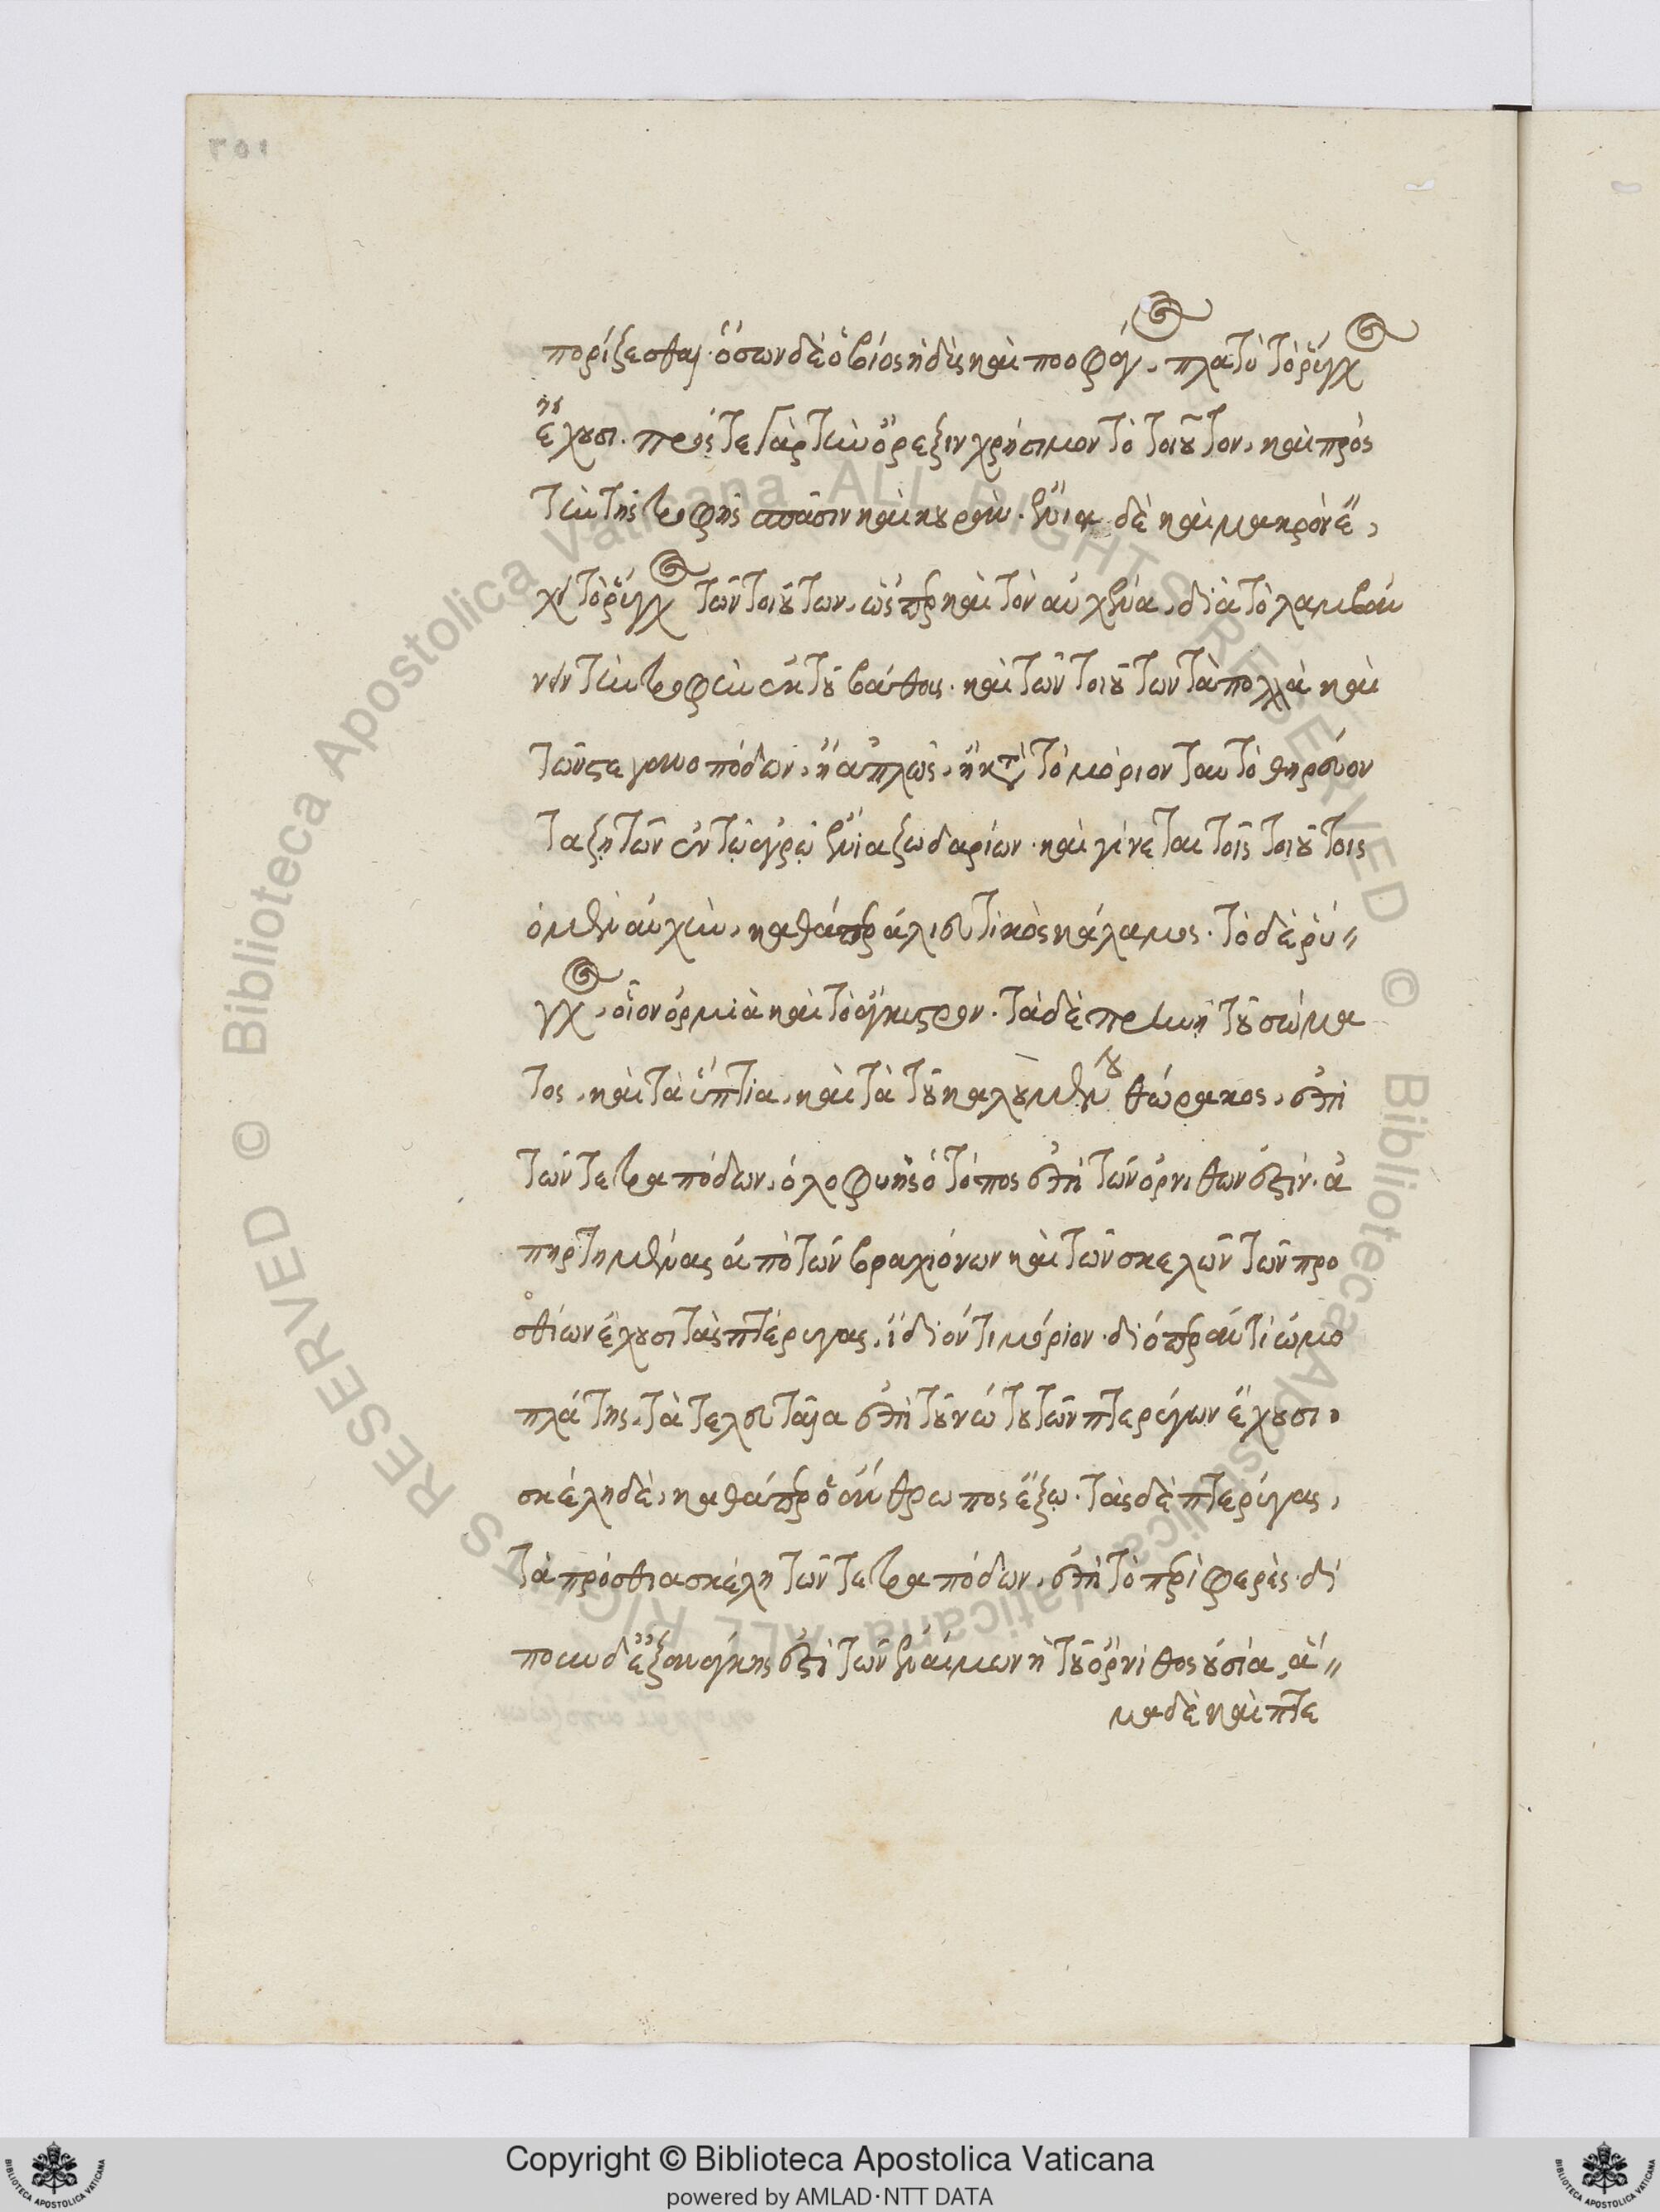 πορίζεσθαι· ὅσων δὲ ὁ βίος ἡδὺς καὶ ποοφάγος, πλατὺ τὸ ῥύγχος
ἔχουσι. πρός τε γὰρ τὴν ὄρεξιν χρήσιμον τὸ τοιοῦτον, καὶ πρὸς
τὴν τῆς τροφῆς σπάσιν καὶ κουράν. ἔνια δὲ καὶ μακρὸν ἔ,
χει τὸ ῥύγχος τῶν τοιούτων, ὥσπερ καὶ τὸν αὐχένα, διὰ τὸ λαμβάν
νειν τὴν τροφὴν ἐκ τοῦ βάθους. καὶ τῶν τοιούτων τὰ πολλὰ καὶ
τῶν στεγανοπόδων, ἢ ἁπλῶς, ἢ κατὰ τὸ μόριον ταυτὸ θηρεύον
τα ζῇ τῶν ἐν τῷ ὑγρῷ ἔνια ζωδαρίων. καὶ γίνεται τοῖς τοιούτοις
ὁ μὲν αὐχὴν, καθάπερ ἁλιευτικὸς κάλαμος. τὸ δὲ ῥύ〃
γχος, οἷον ὁρμιὰ καὶ τὸ ἄγκιστρον. τὰ δὲ πρανῆ τοῦ σώμα
τος, καὶ τὰ ὕπτια, καὶ τὰ τοῦ καλουμένου θώρακος, ἐπὶ
τῶν τετραπόδων, ὁλοφυὴς ὁ τόπος ἐπὶ τῶν ὀρνίθων ἐστίν. ἀ
πηρτημένας ἀπὸ τῶν βραχιόνων καὶ τῶν σκελῶν τῶν προ
σθίων ἔχουσι τὰς πτέρυγας, ἴδιόν τι μόριον. διόπερ ἀντὶ ὠμο
πλάτης, τὰ τελευταῖα ἐπὶ τοῦ νώτου τῶν πτερύγων ἔχουσι.
σκέλη δὲ, καθάπερ ὁ ἄνθρωπος ἔξω. τὰς δὲ πτέρυγας,
τὰ πρόσθια σκέλη τῶν τετραπόδων, ἐπὶ τὸ περιφερὲς. δί
πουν δὲ ἐξ ἀνάγκης ἐστὶ τῶν ἐναίμων ἡ τοῦ ὄρνιθος οὐσία, ἅ〃
μα δὲ καὶ πτε
Copyright © Biblioteca Apostolica Vaticana
powered by AMLAD·NTT DATA